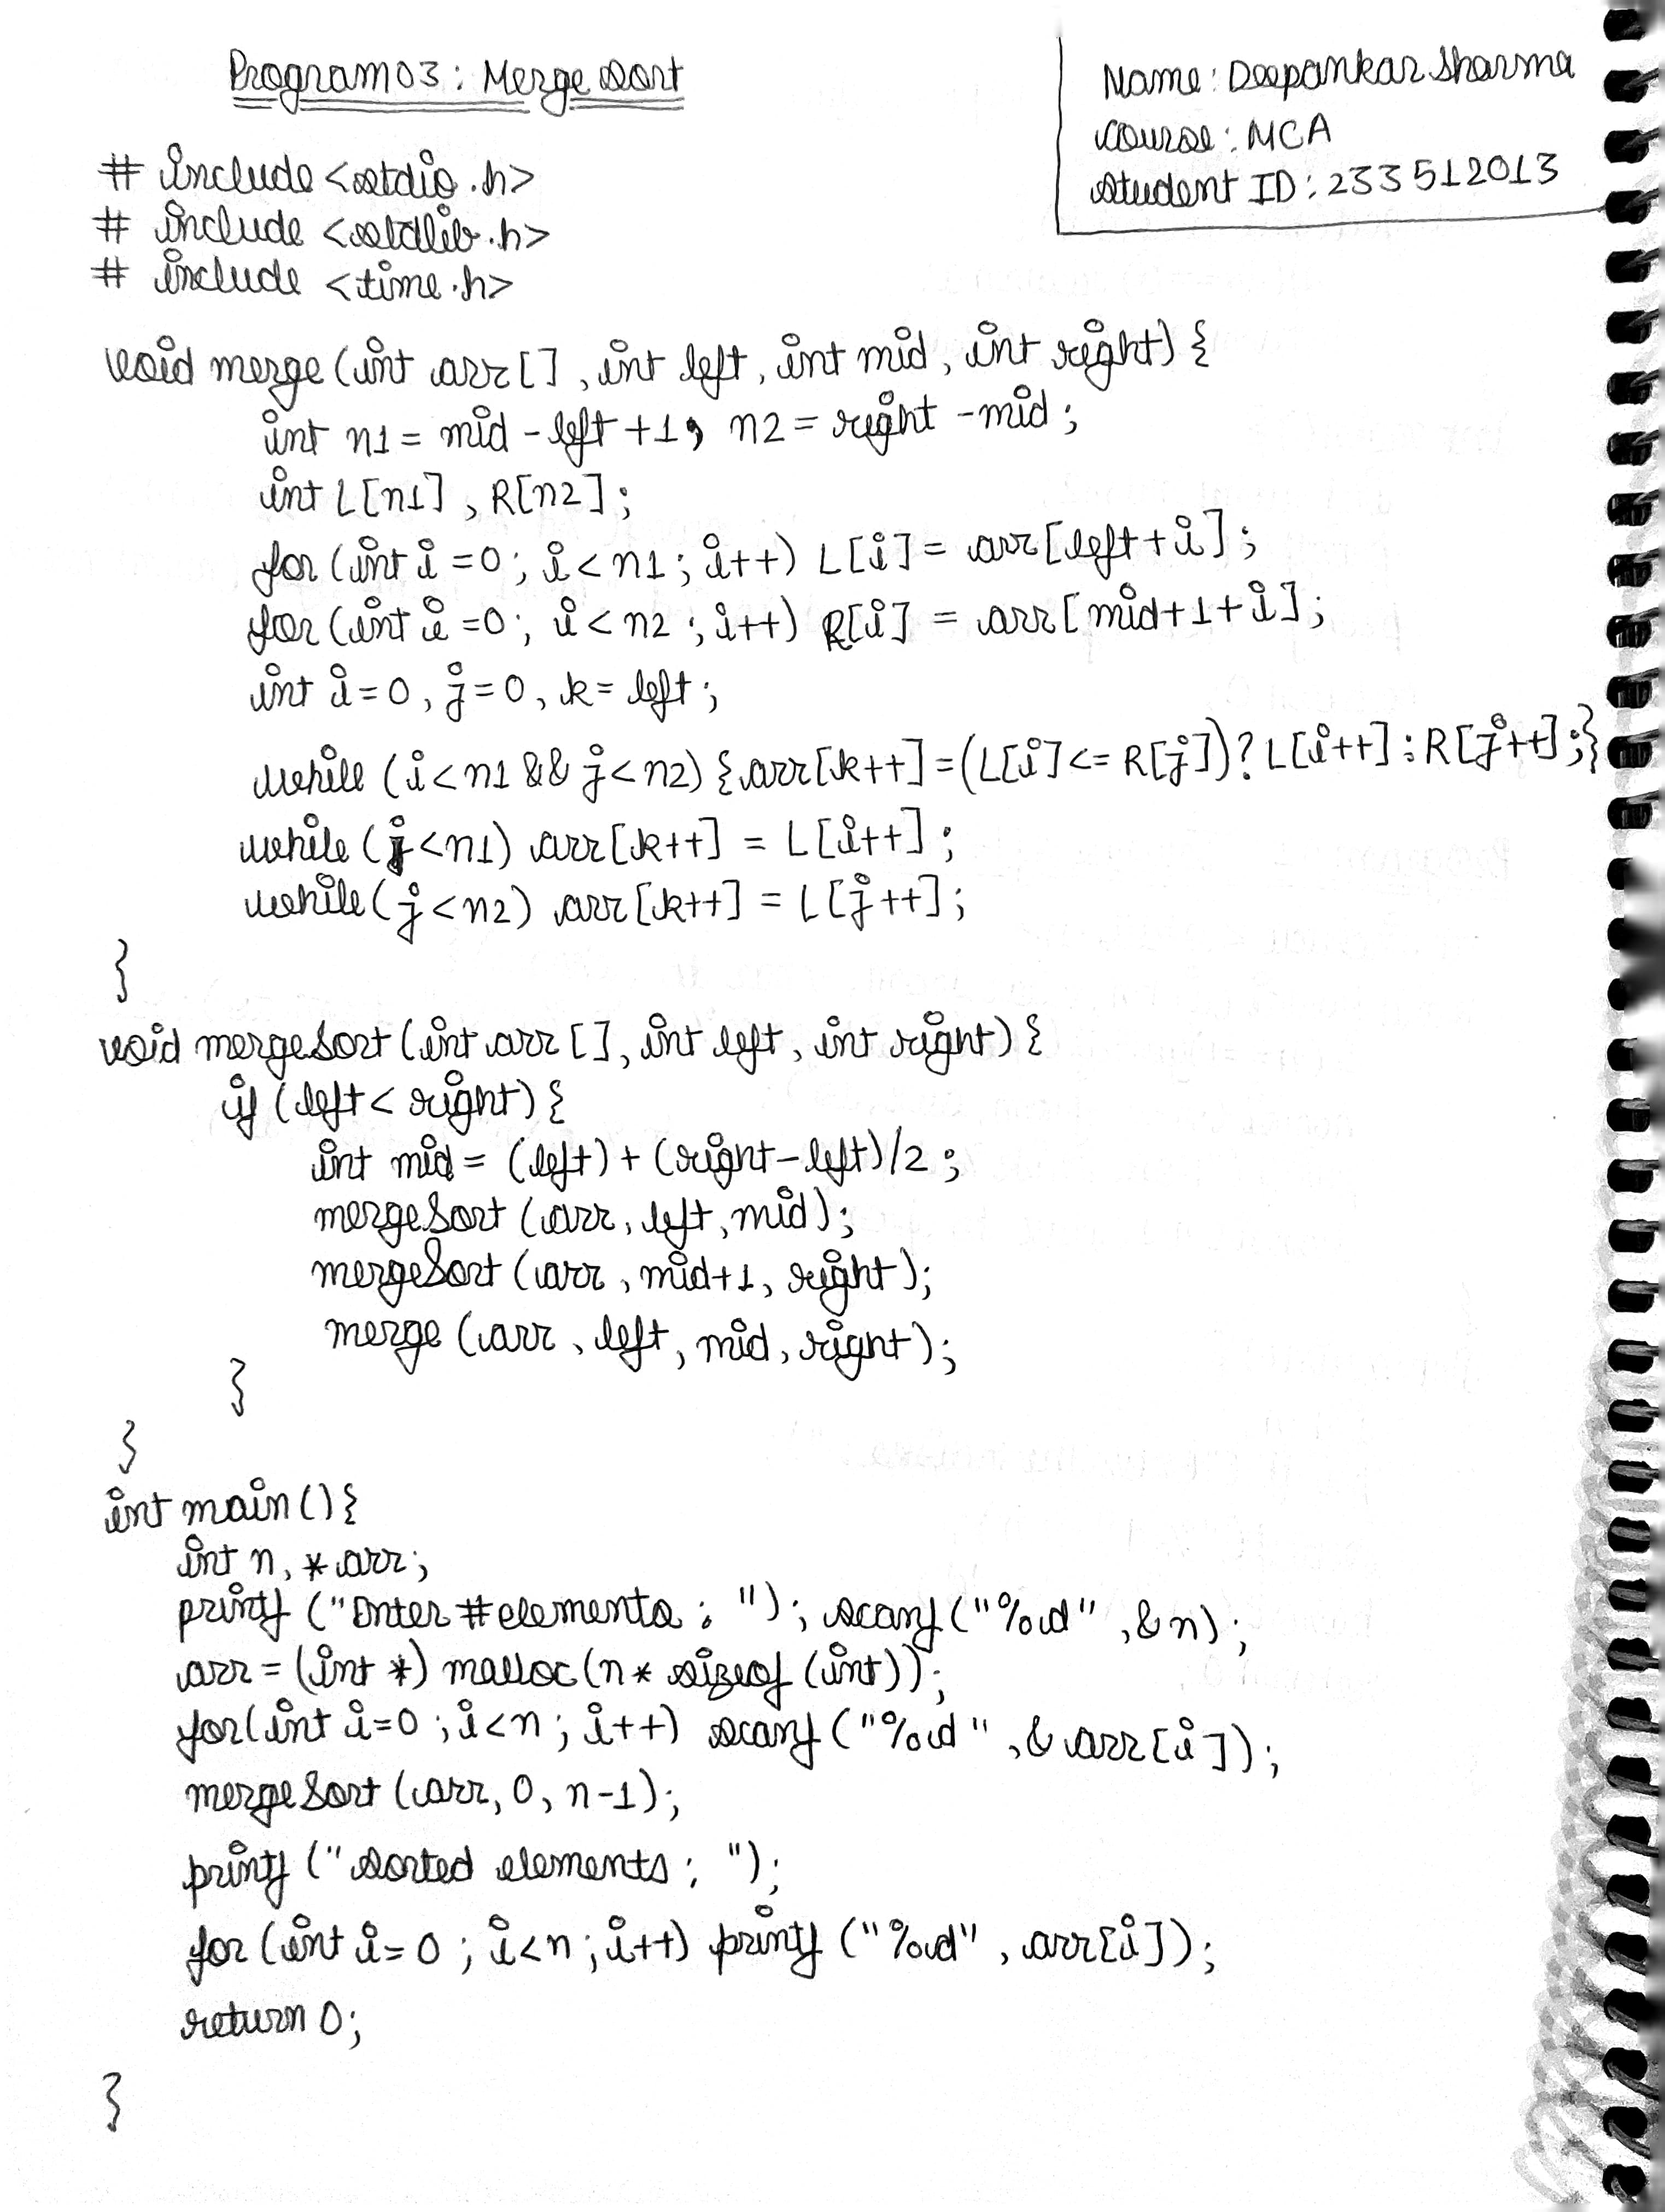 Program 03: Merge Sort
Name: Deepankar Sharma
Course: MCA
Student ID: 233512013
# include <stdio.h>
# include <stdlib.h>
# include <time.h>
void merge (int arr[], int left, int mid, int right) {
int n1 = mid - left + 1, n2 = right - mid;
int L[n1], R[n2];
for (int i = 0; i < n1; i++) L[i] = arr[left+i];
for (int i = 0; i < n2; i++) R[i] = arr[mid+1+i];
int i = 0, j = 0, k = left;
while (i < n1 && j < n2) {arr[k++] = (L[i] <= R[j]) ? L[i++] : R[j++];}
while (j < n1) arr[k++] = L[i++];
while (j < n2) arr[k++] = L[j++];
}
void mergeSort (int arr[], int left, int right) {
if (left < right) {
int mid = (left) + (right-left)/2;
mergeSort (arr, left, mid);
mergeSort (arr, mid+1, right);
merge (arr, left, mid, right);
}
}
int main () {
int n, *arr;
printf ("Enter #elements: "); scanf ("%d", &n);
arr = (int *) malloc (n * sizeof (int));
for (int i=0; i<n; i++) scanf ("%d", &arr[i]);
mergeSort (arr, 0, n-1);
printf ("Sorted elements: ");
for (int i = 0; i<n; i++) printf ("%d", arr[i]);
return 0;
}